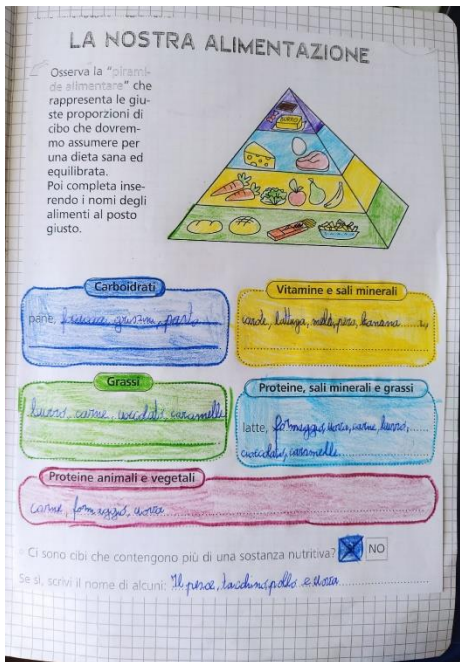 LA NOSTRA ALIMENTAZIONE
Osserva la "pirami-
de alimentare" che
rappresenta le giu-
ste proporzioni di
cibo che dovrem-
mo assumere per
una dieta sana ed
equilibrata.
Poi completa inse-
rendo i nomi degli
alimenti al posto
giusto.
BURRO
Carboidrati
pane, focaccia, grissini, pasta
Vitamine e sali minerali
carote, lattuga, mela, pera, banana
Grassi
burro, carne, cioccolato, caramelle
Proteine, sali minerali e grassi
latte, formaggio, uova, carne, burro,
cioccolato, caramelle
Proteine animali e vegetali
carne, formaggio, uova
Ci sono cibi che contengono più di una sostanza nutritiva? NO
Se sì, scrivi il nome di alcuni: Il pesce, tacchino, pollo e uova